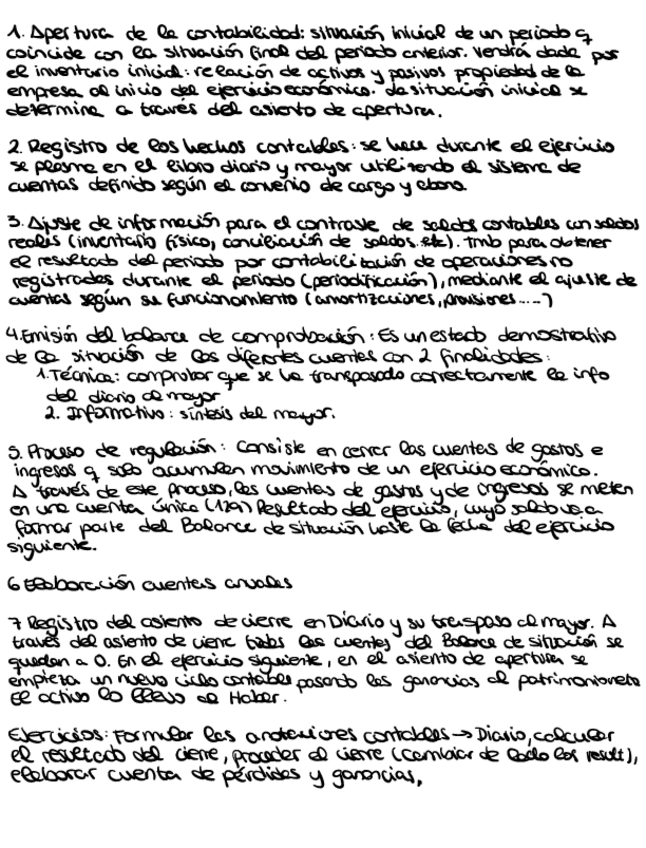 1. Apertura de la contabilidad: situación inicial de un periodo q
coincide con la situación final del periodo anterior. Vendrá dada por
el inventario inicial: relación de activos y pasivos propiedad de la
empresa al inicio del ejercicio económico. La situación inicial se
determina a través del asiento de apertura.
2. Registro de los hechos contables: se hace durante el ejercicio
se plasma en el libro diario y mayor utilizando el sistema de
cuentas definido según el convenio de cargo y abono.
3. Ajuste de información para el contraste de saldos contables con saldos
reales (inventario físico, conciliación de saldos. etc). Tmb para obtener
el resultado del periodo por contabilización de operaciones no
registradas durante el periodo (periodificación), mediante el ajuste de
cuentas según su funcionamiento (amortizaciones, provisiones....)
4. Emisión del balance de comprobación: Es un estado demostrativo
de la situación de las diferentes cuentas con 2 finalidades:
1. Técnica: comprobar que se ha transpasado correctamente la info
del diario al mayor
2. Informativo: síntesis del mayor.
5. Proceso de regulación: Consiste en cerrar las cuentas de gastos e
ingresos q solo acumulan movimiento de un ejercicio económico.
A través de este proceso, las cuentas de gastos y de ingresos se meten
en una cuenta única (129) Resultado del ejercicio, cuyo saldo va a
formar parte del Balance de situación hasta la fecha del ejercicio
siguiente.
6 Elaboración cuentas anuales
7 Registro del asiento de cierre en Diario y su traspaso al mayor. A
través del asiento de cierre todas las cuentas del Balance de situación se
quedan a 0. En el ejercicio siguiente, en el asiento de apertura se
empieza un nuevo ciclo contable pasando las ganancias al patrimonio neto
El activo lo llevo al Haber.
Ejercicios: Formular las anotaciones contables → Diario, calcular
el resultado del cierre, proceder al cierre (cambiar de lado los result),
elaborar cuenta de pérdidas y ganancias,